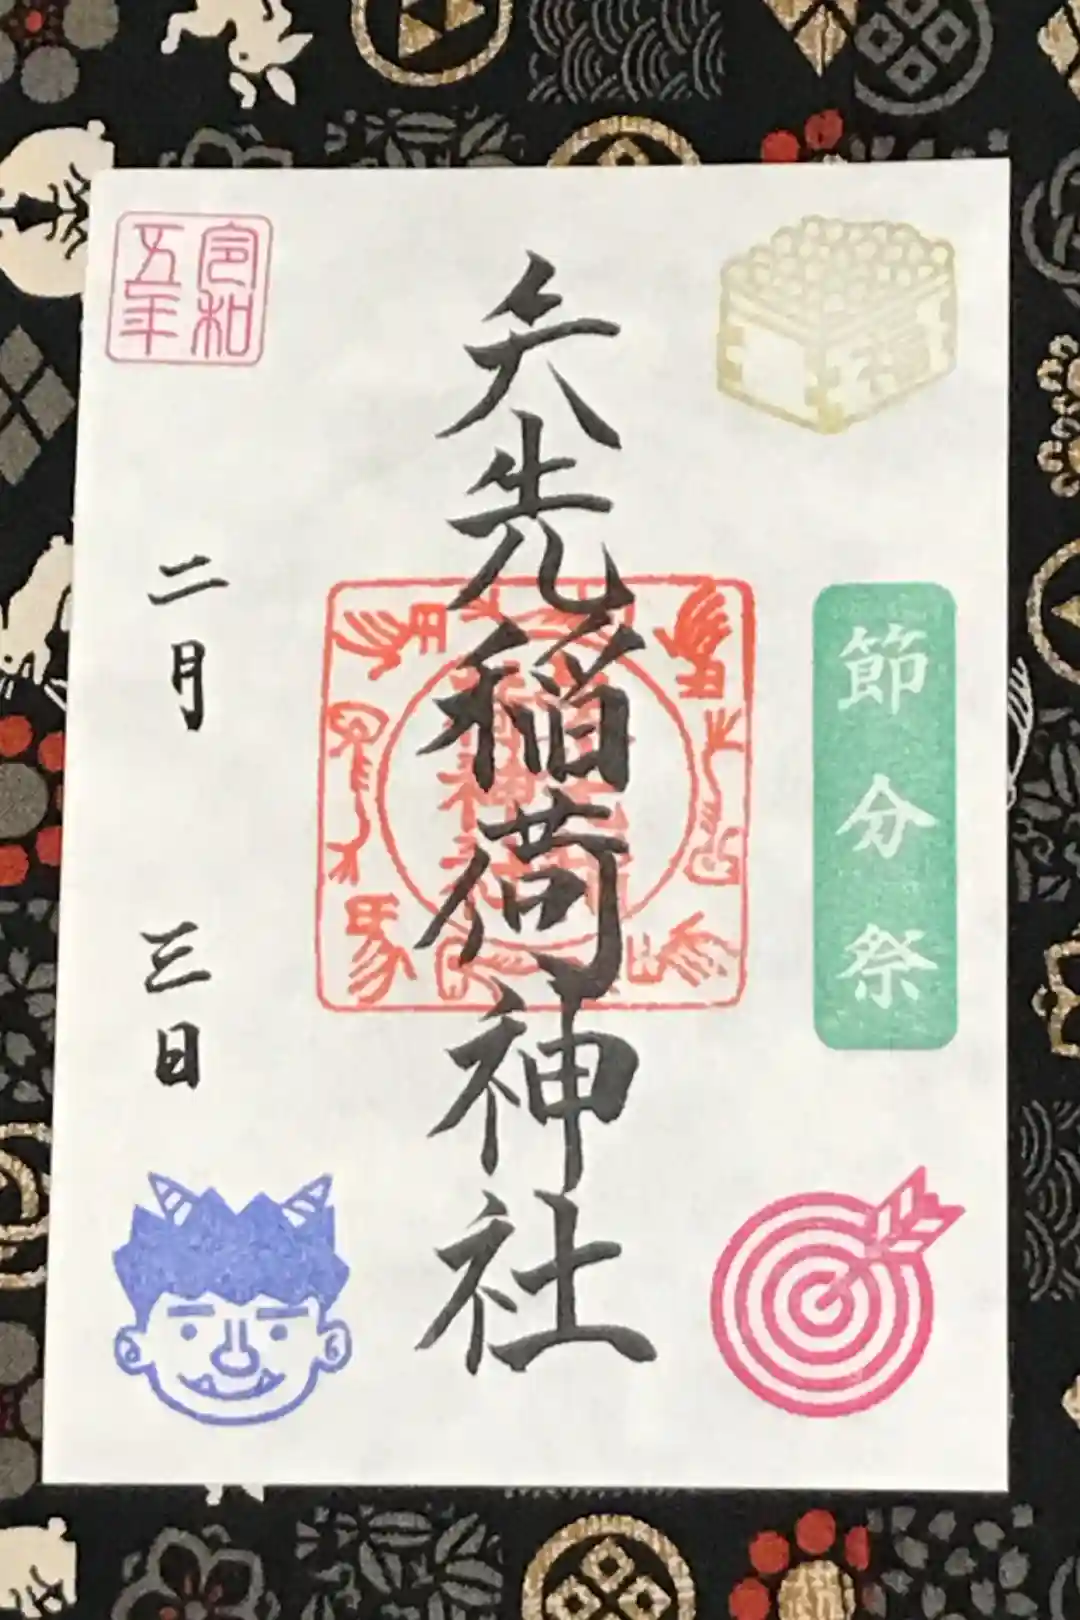 節分祭
矢先稲荷神社
令和
五年
二月
三日